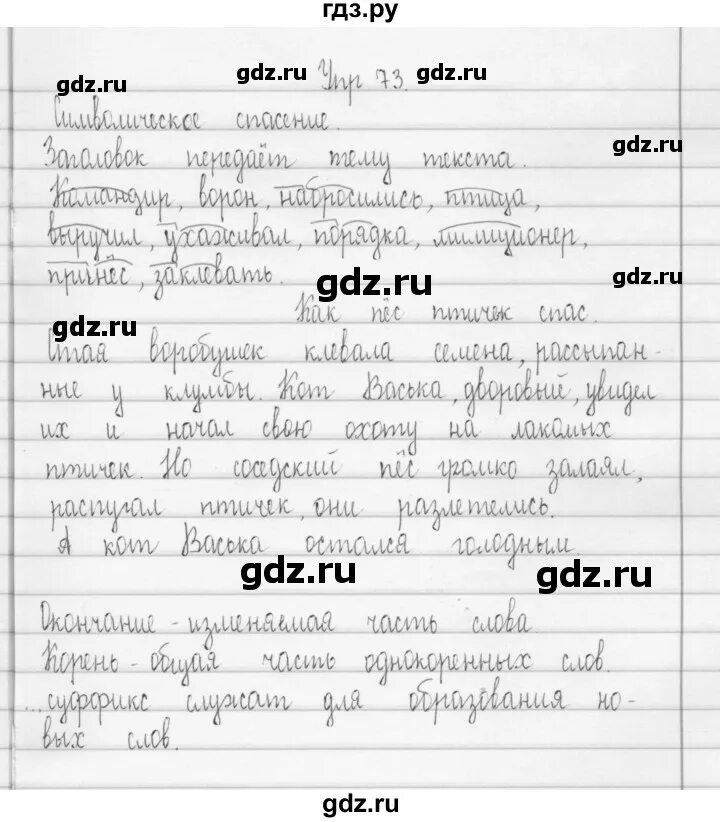 гдз.ру
gdz.ru Упр 73. gdz.ru
Символическое спасение.
Заголовок передаёт тему текста. gdz.ru
Командир, ворон, набросились, птица,
выручил, ухаживал, порядка, милиционер,
принёс, заклевать. gdz.ru gdz.ru
Как пёс птичек спас.
gdz.ru
Стая воробушек клевала семена, рассыпан-
ные у клумбы. Кот Васька, дворовый, увидел
их и начал свою охоту на лакомых
птичек. Но соседский пёс громко залаял,
распугал птичек, они разлетелись.
А кот Васька остался голодным.
gdz.ru gdz.ru
Окончание - изменяемая часть слова
Корень - общая часть однокоренных слов.
...суффикс служат для образования но-
вых слов.
gdz.ru